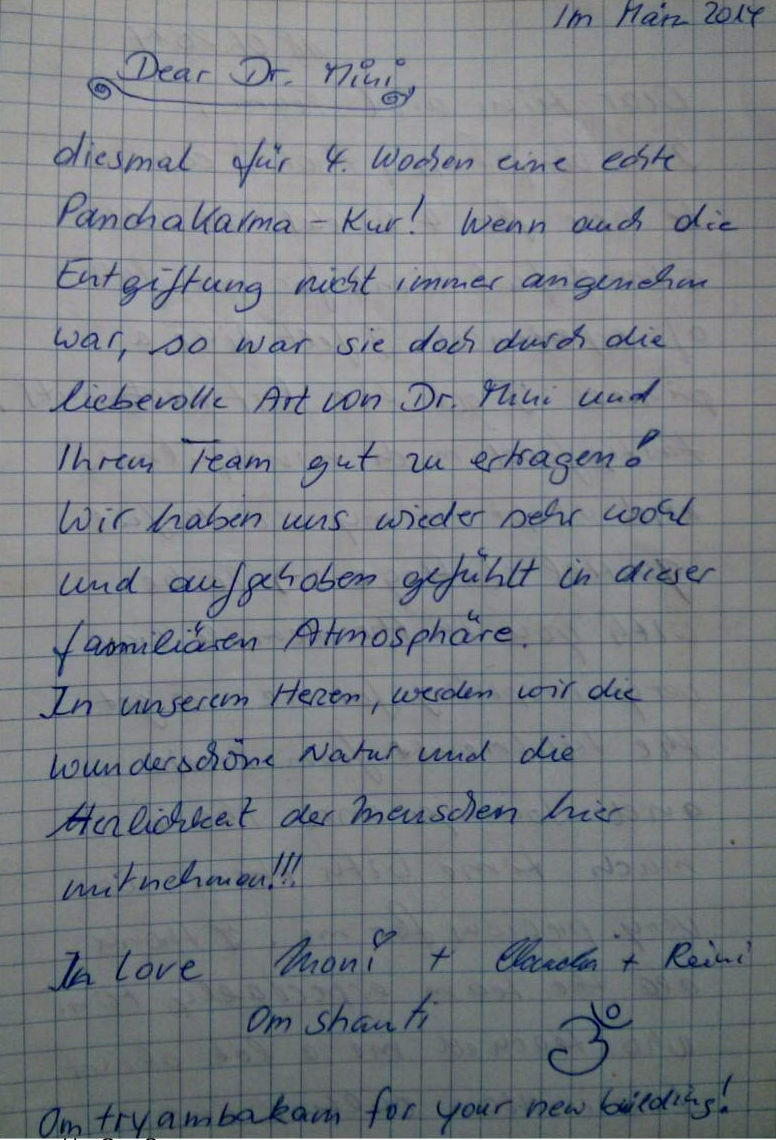 Im März 2014
Dear Dr. Mini,
diesmal für 4. Wochen eine echte
Panchakarma - Kur! Wenn auch die
Entgiftung nicht immer angenehm
war, so war sie doch durch die
liebevolle Art von Dr. Mini und
Ihrem Team gut zu ertragen!
Wir haben uns wieder sehr wohl
und aufgehoben gefühlt in dieser
familiären Atmosphäre.
In unserem Herzen, werden wir die
wunderschöne Natur und die
Herzlichkeit der Menschen hier
mitnehmen!!!
In Love Moni + Claudia + Reini
Om shanti
ॐ
Om tryambakam for your new building!